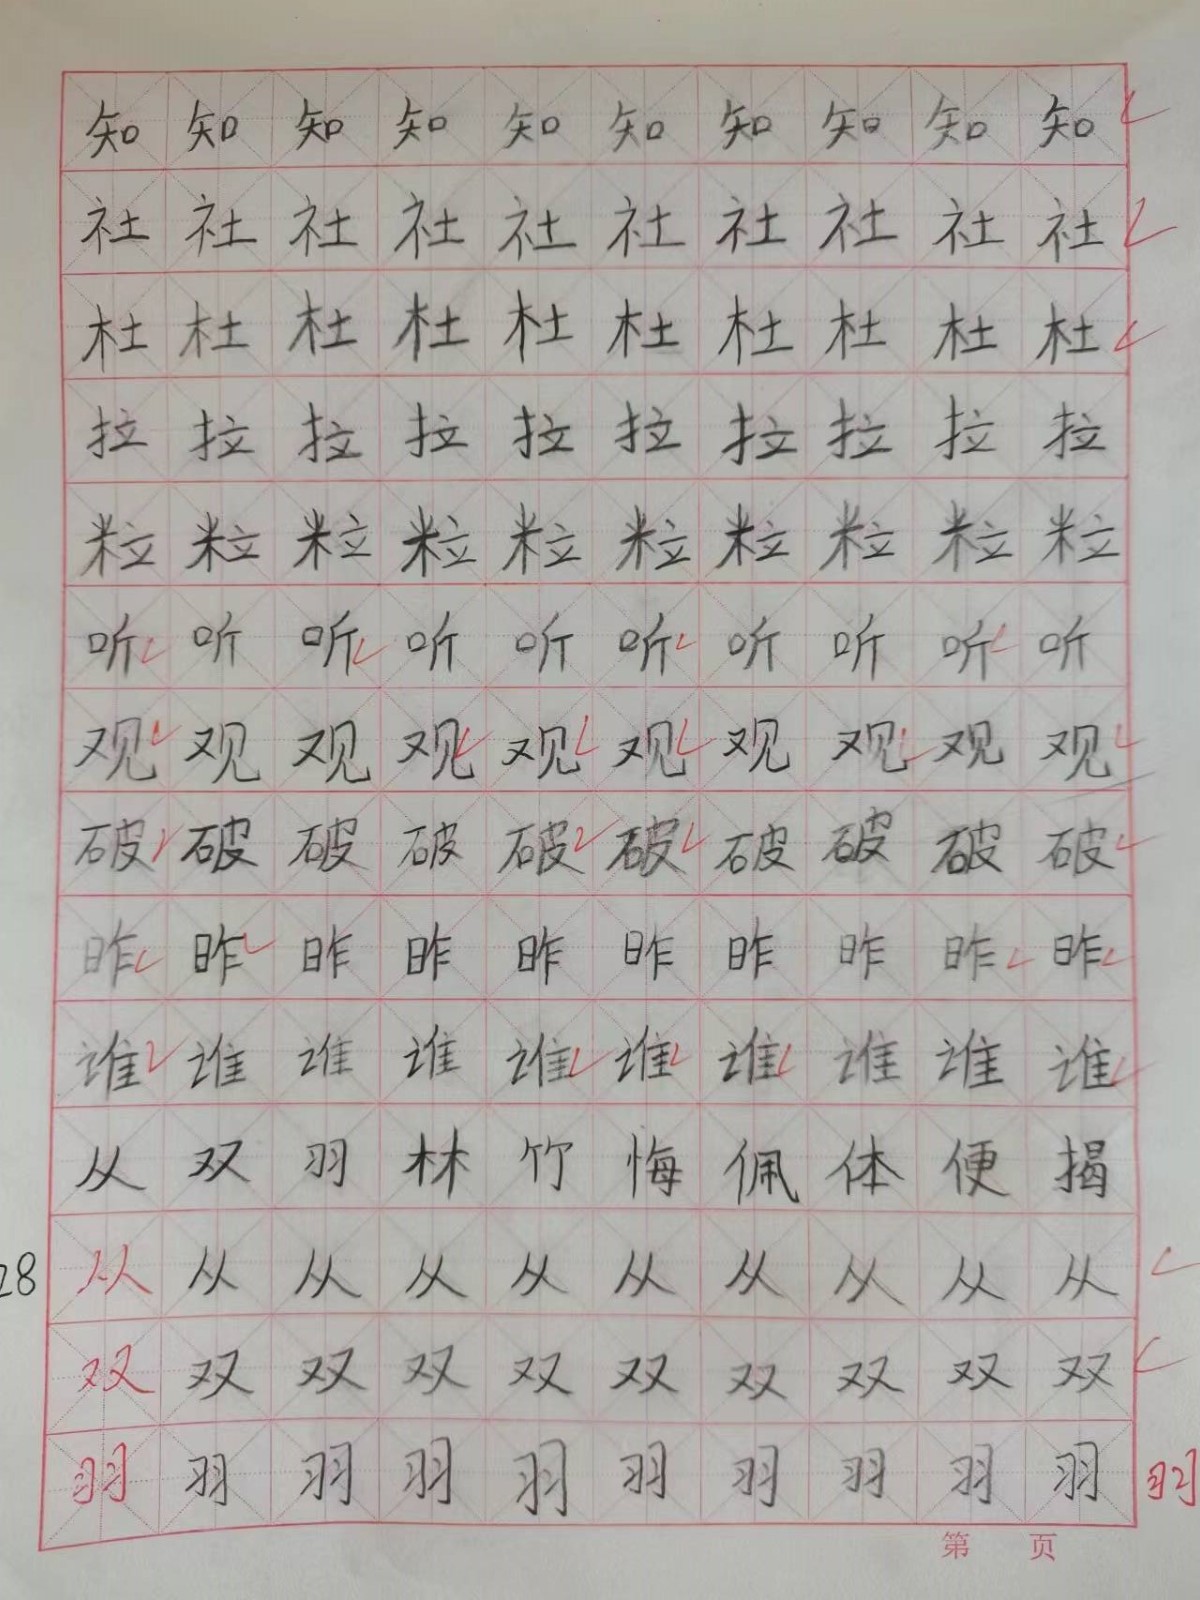 知知知知知知知知知知
社社社社社社社社社社
杜杜杜杜杜杜杜杜杜杜
拉拉拉拉拉拉拉拉拉拉
粒粒粒粒粒粒粒粒粒粒
听听听听听听听听听听
观观观观观观观观观观
破破破破破破破破破破
昨昨昨昨昨昨昨昨昨昨
谁谁谁谁谁谁谁谁谁谁
从双羽林竹悔佩体便揭
28 从从从从从从从从从从
双双双双双双双双双双
羽羽羽羽羽羽羽羽羽羽 羽
第 页